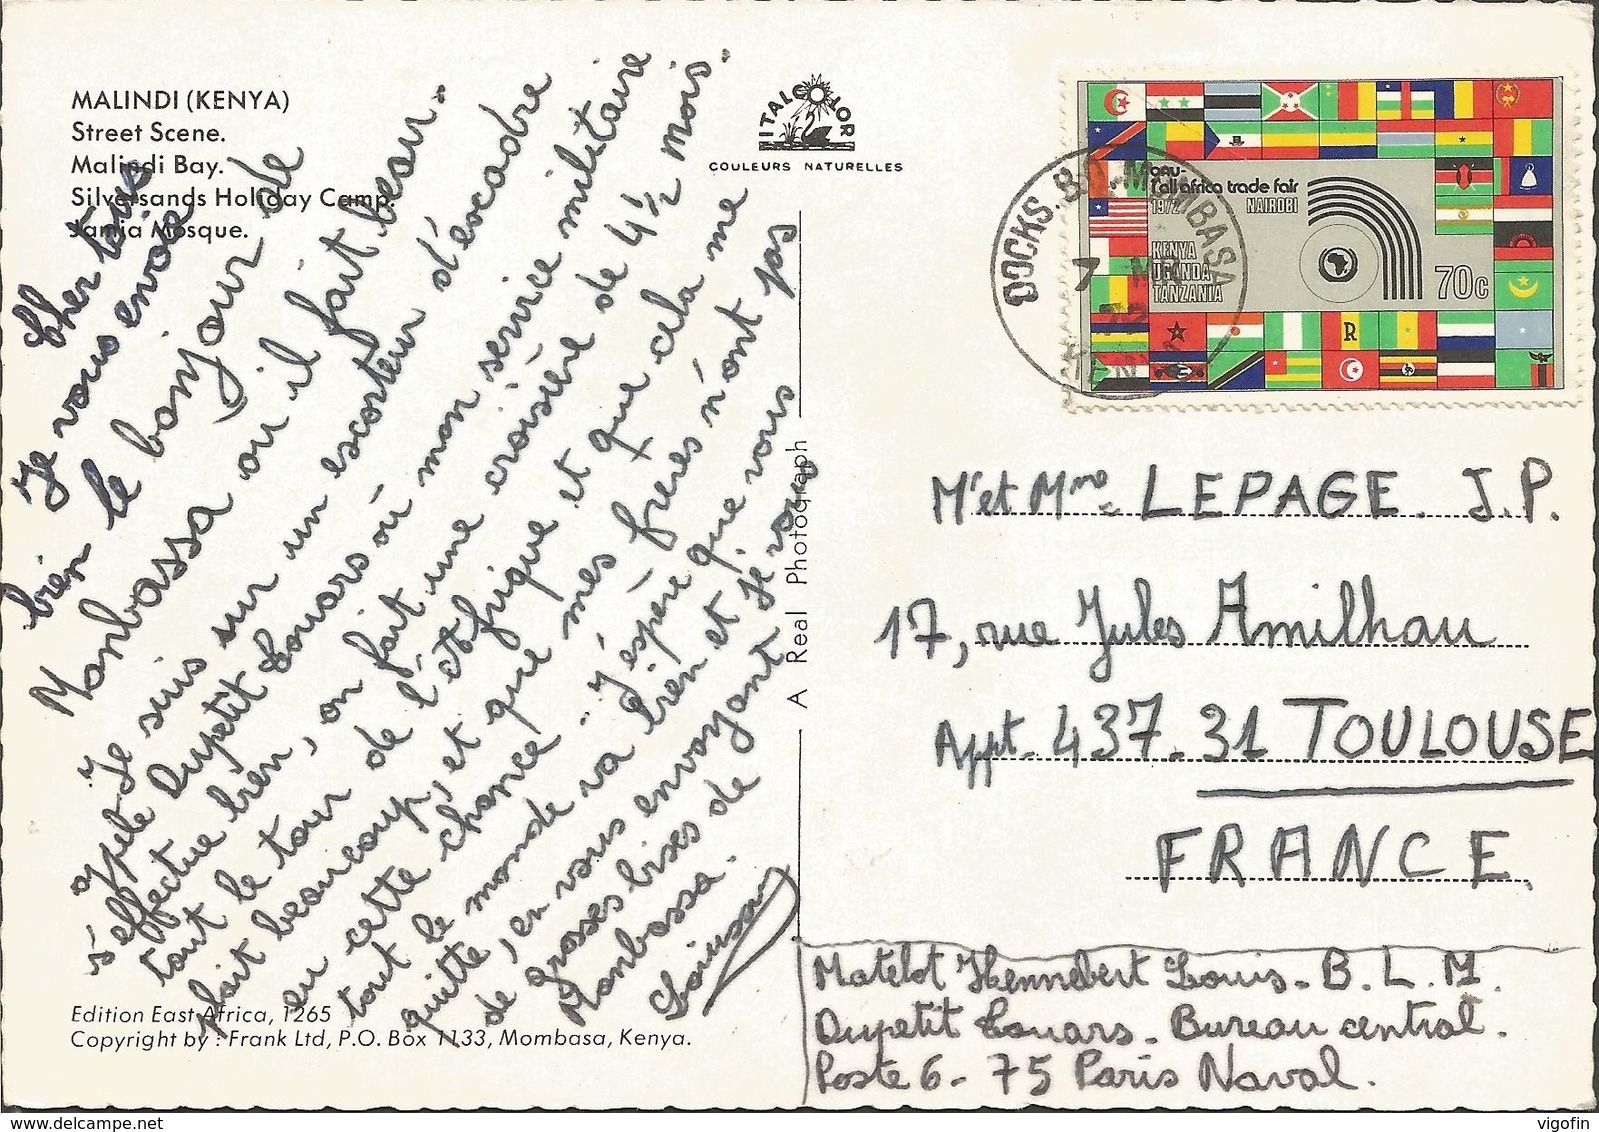 MALINDI (KENYA)
Street Scene.
Malindi Bay.
Silversands Holiday Camp.
Jamia Mosque.
Cher tous
Je vous envoie
bien le bonjour de
Monbassa où il fait beau.
Je suis sur un escorteur d'escadre
appelé Dupetit Thouars où mon service militaire
s'effectue bien, on fait une croisière de 4 1/2 mois.
tout le tour de l'Afrique et que cela me
plait beaucoup, et que mes frères n'ont pas
eu cette chance.. J'espère que vous
tout le monde va bien et je vous
quitte, en vous envoyant
de grosses bises de
Monbassa.
Edition East Africa, 1265
Copyright by : Frank Ltd, P.O. Box 1133, Mombasa, Kenya.
ITALCOLOR
COULEURS NATURELLES
A Real Photograph
OAU-
1st all africa trade fair
1972 NAIROBI
KENYA
UGANDA
TANZANIA
70c
R
DOCKS. B.O. MOMBASA
7
72
KENYA
Mr et Mme LEPAGE. J.P.
17, rue Jules Amilhau
Appt. 437. 31 TOULOUSE
FRANCE.
Matelot Hennebert Louis. B.L.M.
Dupetit Thouars. Bureau central.
Poste 6 - 75 Paris Naval.
vigofin